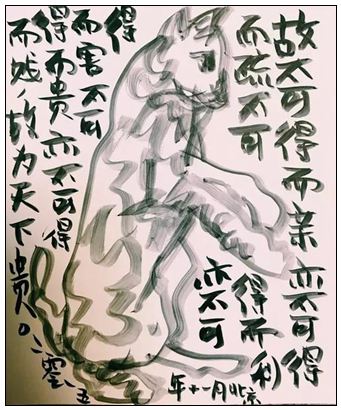 故不可得而亲亦不可得
而疏不可得而利
亦不可
得
而害不可
得而贵亦不可得
而贱，故为天下贵。二零一五
年十一月北京